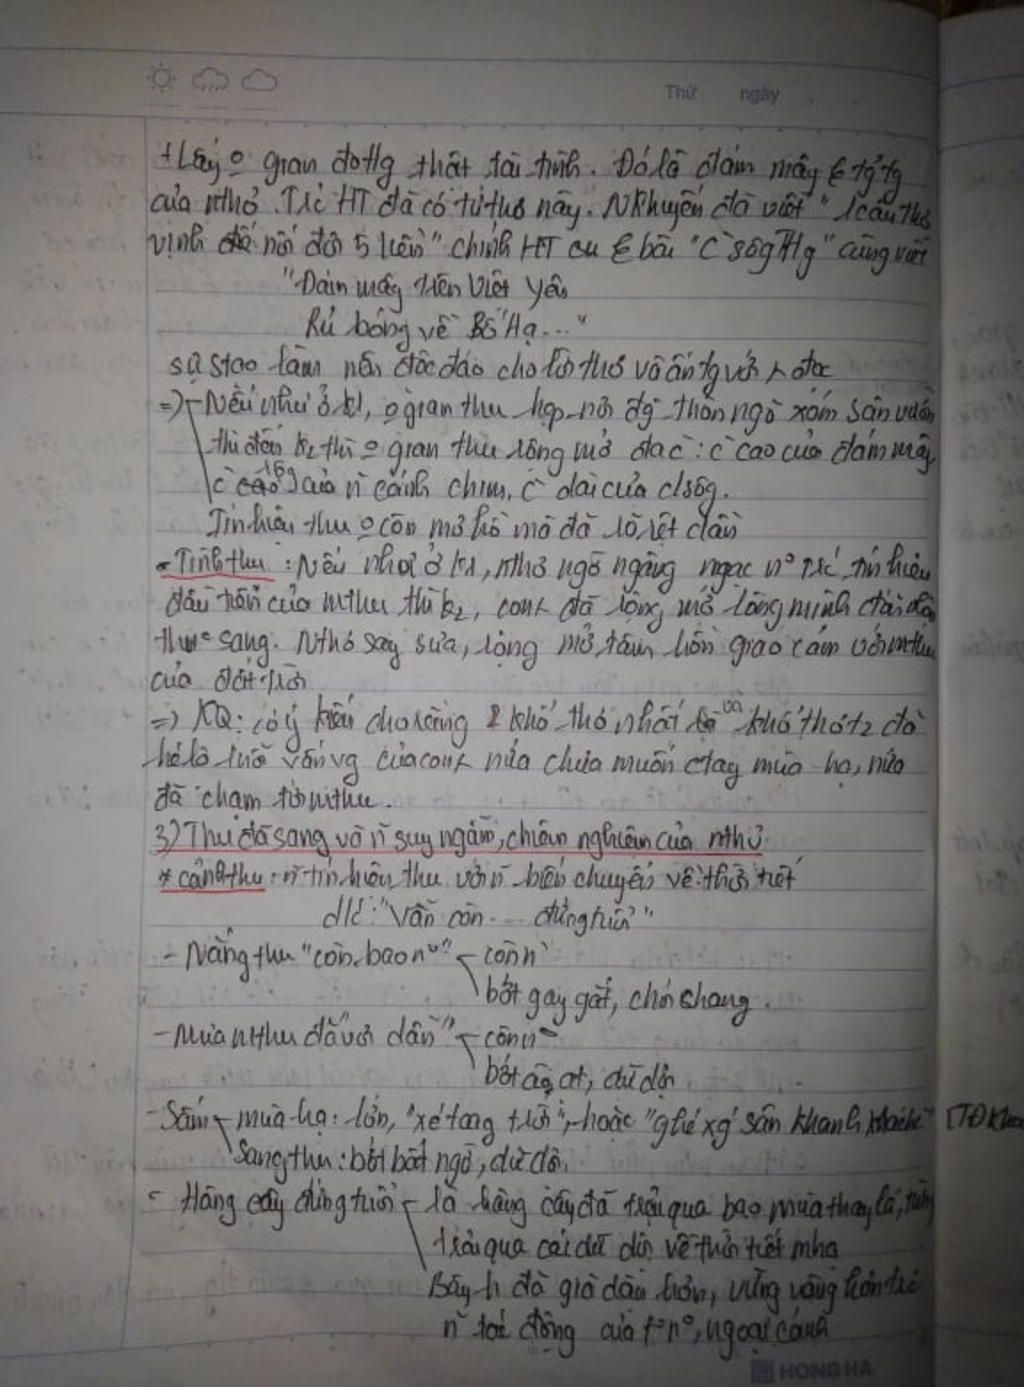 Thứ ngày
+ Lấy o gian đo tlg thật tài tình. Đó là đám mây € tg tg
của nthơ. Trc HT đã có tứ thơ này. NKhuyến đã viết "1 câu thơ
vịnh đã nối đôi 5 liền" chính HT cu € bài "C` sôg Thg" cũng viết
"Đám mây trên Việt Yên
Rủ bóng về Bố Hạ..."
sự stạo làm nên độc đáo cho lời thơ và ấn tg với đọc
=> Nếu như ở k1, o gian thu hẹp nơi đg thôn ngõ xóm sân vườn
thì đến k2 thì o gian thu rộng mở đa c`: c` cao của đám mây
c` rộg của n~ cánh chim, c` dài của d sôg.
Tín hiệu thu o còn mơ hồ mà đã rõ rệt dần
- Tình thu: Nếu như ở k1, nthơ ngỡ ngàng ngạc n° trc tín hiệu
đầu tiên của mthu thì k2, con đã rộng mở lòng mình đón
thu sang. Nthơ say sưa, rộng mở tâm hồn giao cảm với mthu
của đất trời
=> KQ: có ý kiến cho rằng 2 khổ thơ nhất là khổ thơ t2 đã
hé lộ vấn vg của con nửa chưa muốn ctay mùa hạ, nửa
đã chạm tới mthu.
3) Thu đã sang và n~ suy ngẫm, chiêm nghiệm của nthơ
* cảnh thu: n~ tín hiệu thu với n~ biến chuyển về thời tiết
d/c: "Vẫn còn .... đứng tuổi"
- Nắng thu "còn bao n°" còn n`
bớt gay gắt, chói chang.
- Mưa mthu đã "vơi dần" còn n`
bớt ào ạt, dữ dội
- Sấm mùa hạ: lớn, "xé toang trời", hoặc "ghé xg' sân khanh khách" (TĐKhoa
Sang thu: bớt bất ngờ, dữ dội.
- Hàng cây đứng tuổi là hàng cây đã trải qua bao mùa thay lá, từng
trải qua cái dữ dội về thời tiết mhạ
Bây h đã già dặn hơn, vững vàng hơn trc
n~ tác động của t°n°, ngoại cảnh
HONG HA